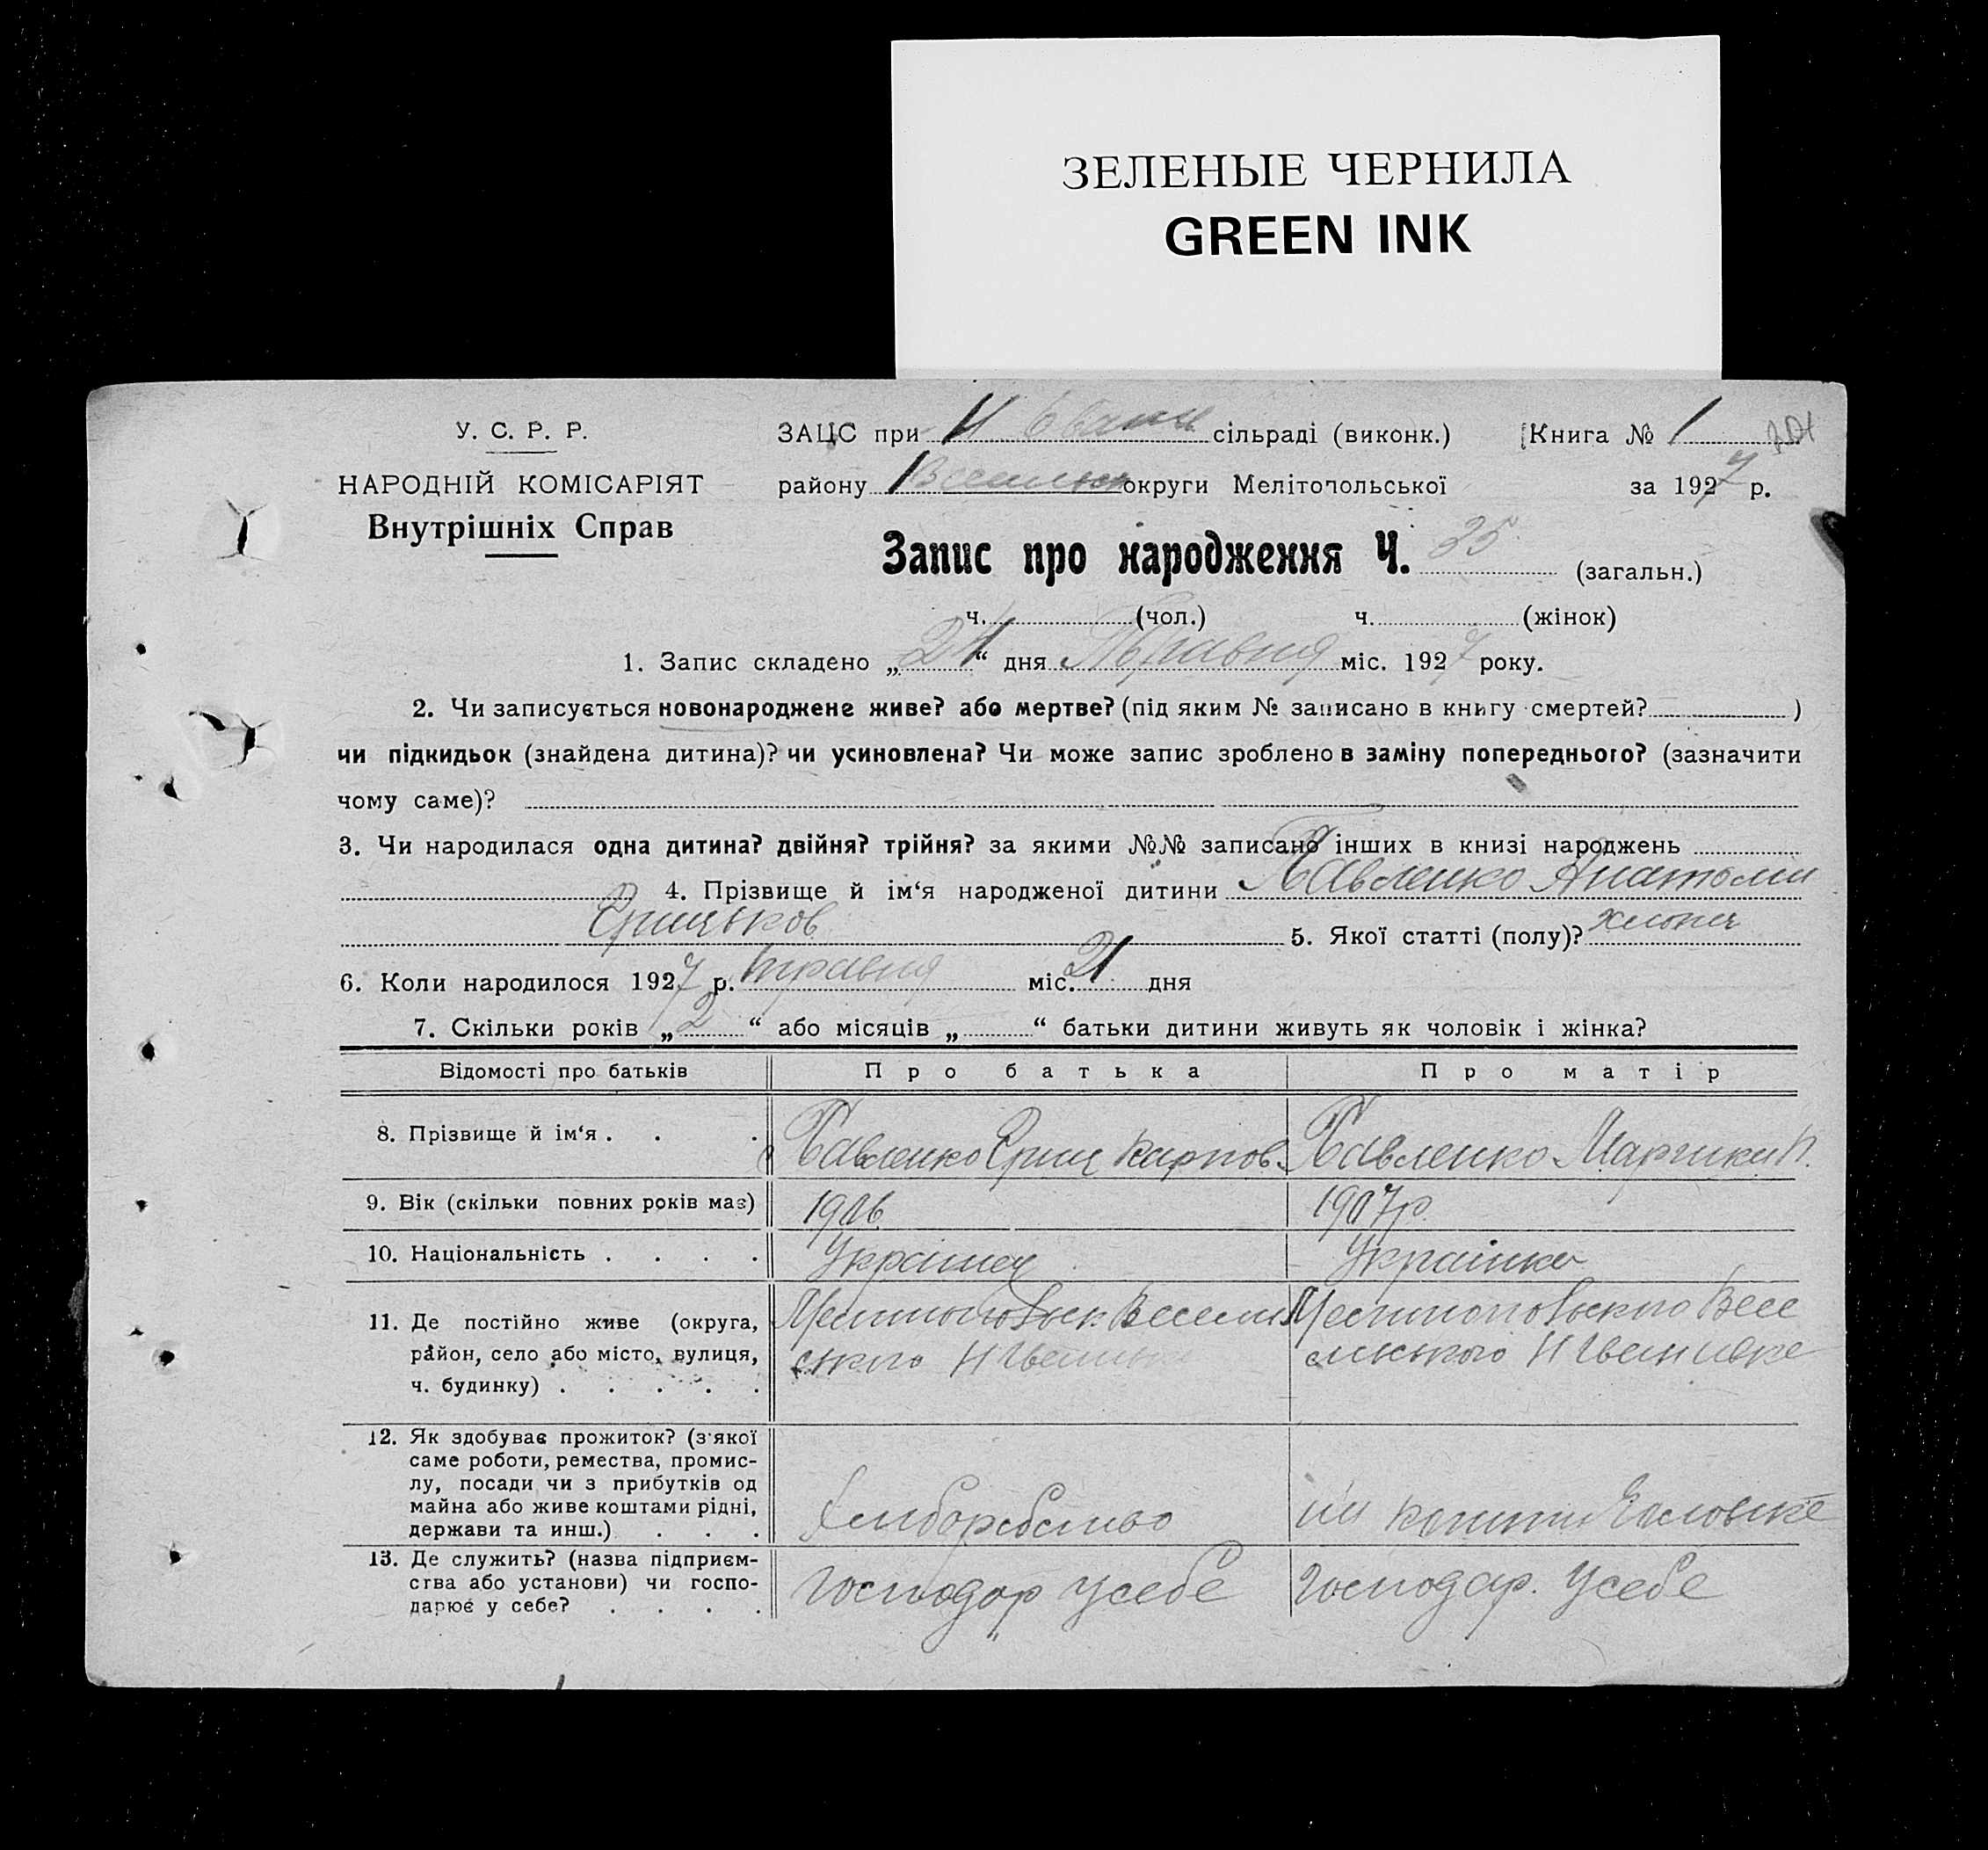 ЗЕЛЕНЫЕ ЧЕРНИЛА
GREEN INK
У. С. Р. Р.
НАРОДНІЙ КОМІСАРІЯТ
Внутрішніх Справ
ЗАЦС при сільраді (виконк.) Книга № 1
району округи Мелітопольської за 1927 р.
Запис про народження Ч. 35 (загальн.)
ч. (чол.) ч. (жінок)
1. Запис складено „24“ дня Травня міс. 1927 року.
2. Чи записується новонароджене живе? або мертве? (під яким № записано в книгу смертей? )
чи підкидьок (знайдена дитина)? чи усиновлена? Чи може запис зроблено в заміну попереднього? (зазначити
чому саме)?
3. Чи народилася одна дитина? двійня? трійня? за якими №№ записано інших в книзі народжень
4. Прізвище й ім‘я народженої дитини Павленко Анатолий
Грицьков 5. Якої статті (полу)? хлопец
6. Коли народилося 1927 р. травня міс. 21 дня
7. Скільки років „2“ або місяців „ “ батьки дитини живуть як чоловік і жінка?
Відомості про батьків Про батька Про матір
8. Прізвище й ім‘я . . . Павленко Гриц Карпов. Павленко
9. Вік (скільки повних років має) 1906 1907р.
10. Національність . . . . Українец Українка
11. Де постійно живе (округа,
район, село або місто, вулиця,
ч. будинку) . . . . .
12. Як здобуває прожиток? (з якої
саме роботи, ремества, промис-
лу, посади чи з прибутків од
майна або живе коштами рідні,
держави та инш.) . . . Хліборобство
13. Де служить? (назва підприєм-
ства або установи) чи госпо-
дарює у себе? . . . . господар усебе господар. усебе